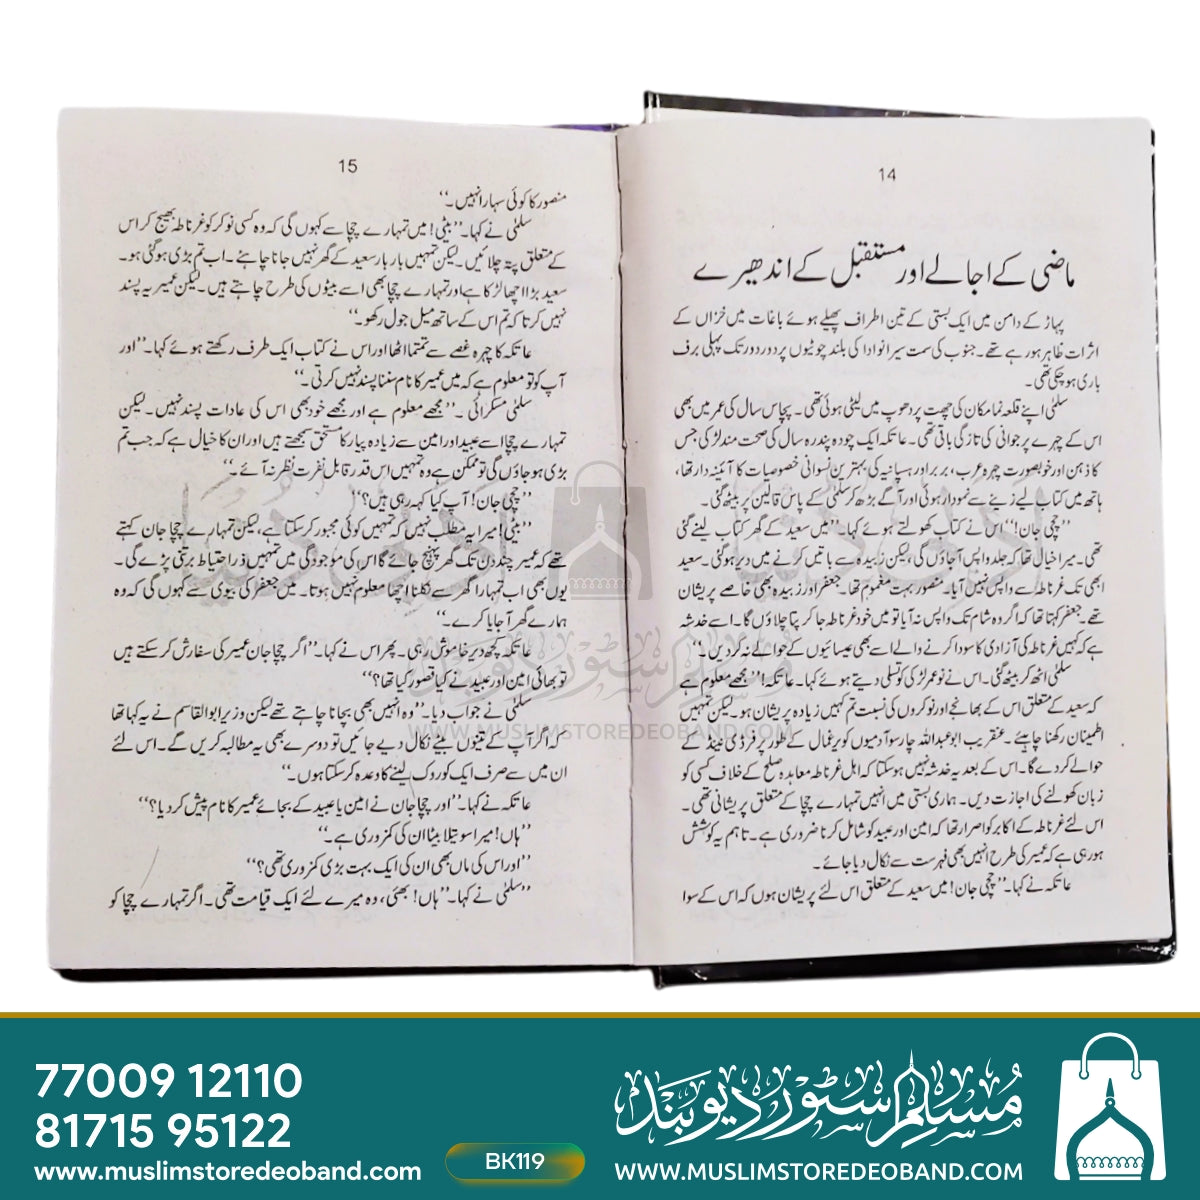 14
ماضی کے اجالے اور مستقبل کے اندھیرے
پہاڑ کے دامن میں ایک بستی کے تین اطراف پھیلے ہوئے باغات میں خزاں کے
اثرات ظاہر ہو رہے تھے۔ جنوب کی سمت سیرانوادا کی بلند چوٹیوں پر دور دور تک پہلی برف
باری ہو چکی تھی۔
سلمٰی اپنے قلعہ نما مکان کی چھت پر دھوپ میں لیٹی ہوئی تھی۔ پچاس سال کی عمر میں بھی
اس کے چہرے پر جوانی کی تازگی باقی تھی۔ عاتکہ ایک چودہ پندرہ سال کی صحت مند لڑکی جس
کا ذہن اور خوبصورت چہرہ عرب، بربر اور ہسپانیہ کی بہترین نسوانی خصوصیات کا آئینہ دار تھا،
ہاتھ میں کتاب لیے زینے سے نمودار ہوئی اور آگے بڑھ کر سلمٰی کے پاس قالین پر بیٹھ گئی۔
’’چچی جان!‘‘ اس نے کتاب کھولتے ہوئے کہا۔ ’’میں سعید کے گھر کتاب لینے گئی
تھی۔ میرا خیال تھا کہ جلد واپس آ جاؤں گی لیکن زبیدہ سے باتیں کرنے میں دیر ہو گئی۔ سعید
ابھی تک غرناطہ سے واپس نہیں آیا۔ منصور بہت مغموم تھا۔ جعفر اور زبیدہ بھی خاصے پریشان
تھے۔ جعفر کہتا تھا کہ اگر وہ شام تک واپس نہ آیا تو میں خود غرناطہ جا کر پتا چلاؤں گا۔ اسے خدشہ
ہے کہ کہیں غرناطہ کی آزادی کا سودا کرنے والے اسے بھی عیسائیوں کے حوالے نہ کر دیں۔‘‘
سلمٰی اٹھ کر بیٹھ گئی۔ اس نے نوعمر لڑکی کو تسلی دیتے ہوئے کہا۔ عاتکہ! ’’مجھے معلوم ہے
کہ سعید کے متعلق اس کے بھانجے اور نوکروں کی نسبت تم کہیں زیادہ پریشان ہو۔ لیکن تمہیں
اطمینان رکھنا چاہیئے۔ عنقریب ابوعبداللہ چار سو آدمیوں کو یرغمال کے طور پر فرڈی نینڈ کے
حوالے کر دے گا۔ اس کے بعد یہ خدشہ نہیں ہو سکتا کہ اہل غرناطہ معاہدہ صلح کے خلاف کسی کو
زبان کھولنے کی اجازت دیں۔ ہماری بستی میں انہیں تمہارے چچا کے متعلق پریشانی تھی۔
اس لئے غرناطہ کے اکابر کو اصرار تھا کہ امین اور عبید کو شامل کرنا ضروری ہے۔ تاہم یہ کوشش
ہو رہی ہے کہ عمیر کی طرح انہیں بھی فہرست سے نکال دیا جائے۔
عاتکہ نے کہا۔ ’’چچی جان! میں سعید کے متعلق اس لئے پریشان ہوں کہ اس کے سوا
15
منصور کا کوئی سہارا نہیں۔‘‘
سلمٰی نے کہا۔ ’’بیٹی! میں تمہارے چچا سے کہوں گی کہ وہ کسی نوکر کو غرناطہ بھیج کر اس
کے متعلق پتہ چلائیں۔ لیکن تمہیں بار بار سعید کے گھر نہیں جانا چاہئے۔ اب تم بڑی ہو گئی ہو۔
سعید بڑا اچھا لڑکا ہے اور تمہارے چچا بھی اسے بیٹوں کی طرح چاہتے ہیں۔ لیکن عمیر یہ پسند
نہیں کرتا کہ تم اس کے ساتھ میل جول رکھو۔‘‘
عاتکہ کا چہرہ غصے سے تمتما اٹھا اور اس نے کتاب ایک طرف رکھتے ہوئے کہا۔ ’’اور
آپ کو تو معلوم ہے کہ میں عمیر کا نام سننا پسند نہیں کرتی۔‘‘
سلمٰی مسکرائی۔ ’’مجھے معلوم ہے اور مجھے خود بھی اس کی عادات پسند نہیں۔ لیکن
تمہارے چچا اسے عبید اور امین سے زیادہ پیار کا مستحق سمجھتے ہیں اور ان کا خیال ہے کہ جب تم
بڑی ہو جاؤں گی تو ممکن ہے وہ تمہیں اس قدر قابل نفرت نظر نہ آئے۔‘‘
’’چچی جان! آپ کیا کہہ رہی ہیں؟‘‘
’’بیٹی! میرا یہ مطلب نہیں کہ تمہیں کوئی مجبور کر سکتا ہے، لیکن تمہارے چچا جان کہتے
تھے کہ عمیر چند دن تک گھر پہنچ جائے گا اس کی موجودگی میں تمہیں ذرا احتیاط برتنی پڑے گی۔
یوں بھی اب تمہارا گھر سے نکلنا اچھا معلوم نہیں ہوتا۔ میں جعفر کی بیوی سے کہوں گی کہ وہ
ہمارے گھر آ جایا کرے۔‘‘
عاتکہ کچھ دیر خاموش رہی۔ پھر اس نے کہا۔ ’’اگر چچا جان عمیر کی سفارش کر سکتے ہیں
تو بھائی امین اور عبید نے کیا قصور کیا تھا؟‘‘
سلمٰی نے جواب دیا۔ ’’وہ انہیں بھی بچانا چاہتے تھے لیکن وزیر ابوالقاسم نے یہ کہا تھا
کہ اگر آپ کے تینوں بیٹے نکال دیے جائیں تو دوسرے بھی یہ مطالبہ کریں گے۔ اس لئے
ان میں سے صرف ایک کو روک لینے کا وعدہ کر سکتا ہوں۔‘‘
عاتکہ نے کہا۔ ’’اور چچا جان نے امین یا عبید کے بجائے عمیر کا نام پیش کر دیا؟‘‘
’’ہاں! میرا سوتیلا بیٹا ان کی کمزوری ہے۔‘‘
’’اور اس کی ماں بھی ان کی ایک بہت بڑی کمزوری تھی؟‘‘
’’سلمٰی نے کہا۔ ’’ہاں! بھئی، وہ میرے لئے ایک قیامت تھی۔ اگر تمہارے چچا کو
ادبی دنیا
مسلم سٹور دیوبند
WWW.MUSLIMSTOREDEOBAND.COM
77009 12110
81715 95122
www.muslimstoredeoband.com
BK119
مسلم سٹور دیوبند
WWW.MUSLIMSTOREDEOBAND.COM